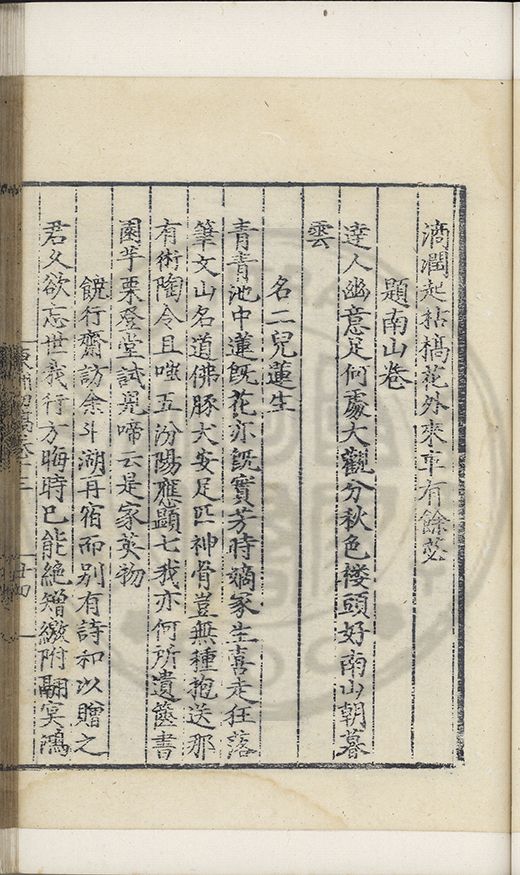 滴潤起枯槁花外來車有餘苾
題南山卷
達人幽意足何處大觀分秋色樓頭好南山朝暮
雲
名二兒蓮生
青青池中蓮既花亦既實芳時嫡冢生喜走狂落
筆文山名道佛豚犬安足匹神骨豈無種抱送那
有術陶令且嗤五汾陽雁顫七我亦何所遺篋書
園芋栗登堂試晃啼云是冢英物
餞行齋訪余斗湖再宿而別有詩和以贈之
君久欲忘世我行方晦時已能絶矰繳附翮冥鴻